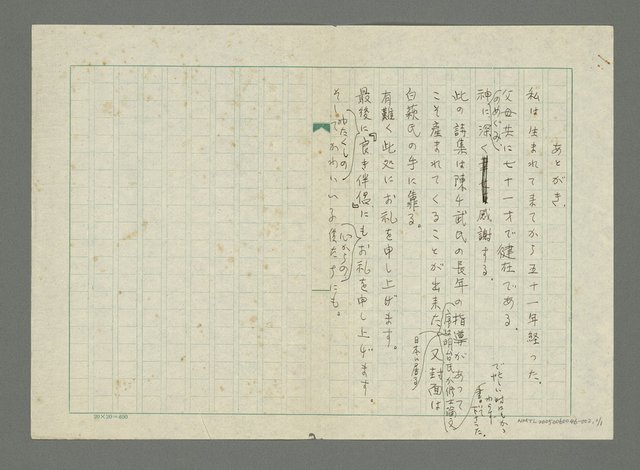 あとがき
私は生まれて来てから五十一年経った。
父母共に七十一才で健在である。
神のめぐみに深く感謝する。
此の詩集は陳千武氏の長年の指導があって
こそ産まれてくることが出来た。又封面は
日本に居る
白萩氏の手に靠る。
有難く此処にお礼を申し上げます。
最後に『良き伴侶』にも心からのお礼を申し上げます。
そしてわたくしのかわいい子供たちにも。
20×20=400
NMTL20050060046-002